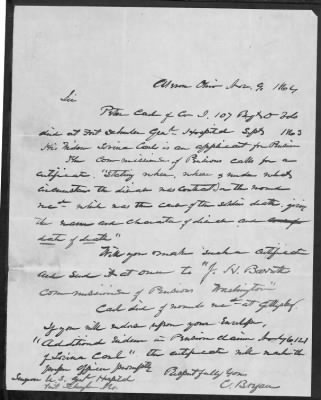 Akron Ohio Nov. 9. 1864
Sir
Peter Carl of Co I, 107 Regt O Vols
died at Fort Schuyler Genl Hospital Sept 1863
His widow Lovina Carl is an applicant for Pension
The Commissioner of Pensions calls for a
certificate "Stating when, where & under what
circumstances the disease was contracted or the wound
recd. which was the cause of the soldiers death, giving
the name and character of disease and
date of death"
Will you make such a certificate
and send it at once to "J. H. Barrett
Commissioner of Pensions Washington"
Carl died of wounds recd at Gettysburg.
If you will endorse upon your Envelope,
"Additional Evidence in Pension claim
of Lovina Carl" the certificate will reach the
proper office promptly
Respectfully Yours
Surgeon U.S. Genl Hospital
Fort Schuyler